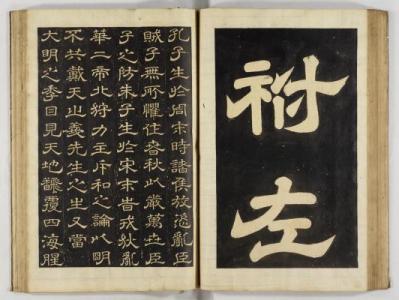 祔左
孔子生於周末時諸侯放恣亂臣
賊子無所懼作春秋以嚴萬世臣
子之防朱子生於宋末旹戎狄亂
華二帝北狩力主斥和之論以明
不共戴天之義先生之生又當
大明之季目見天地飜覆四海腥